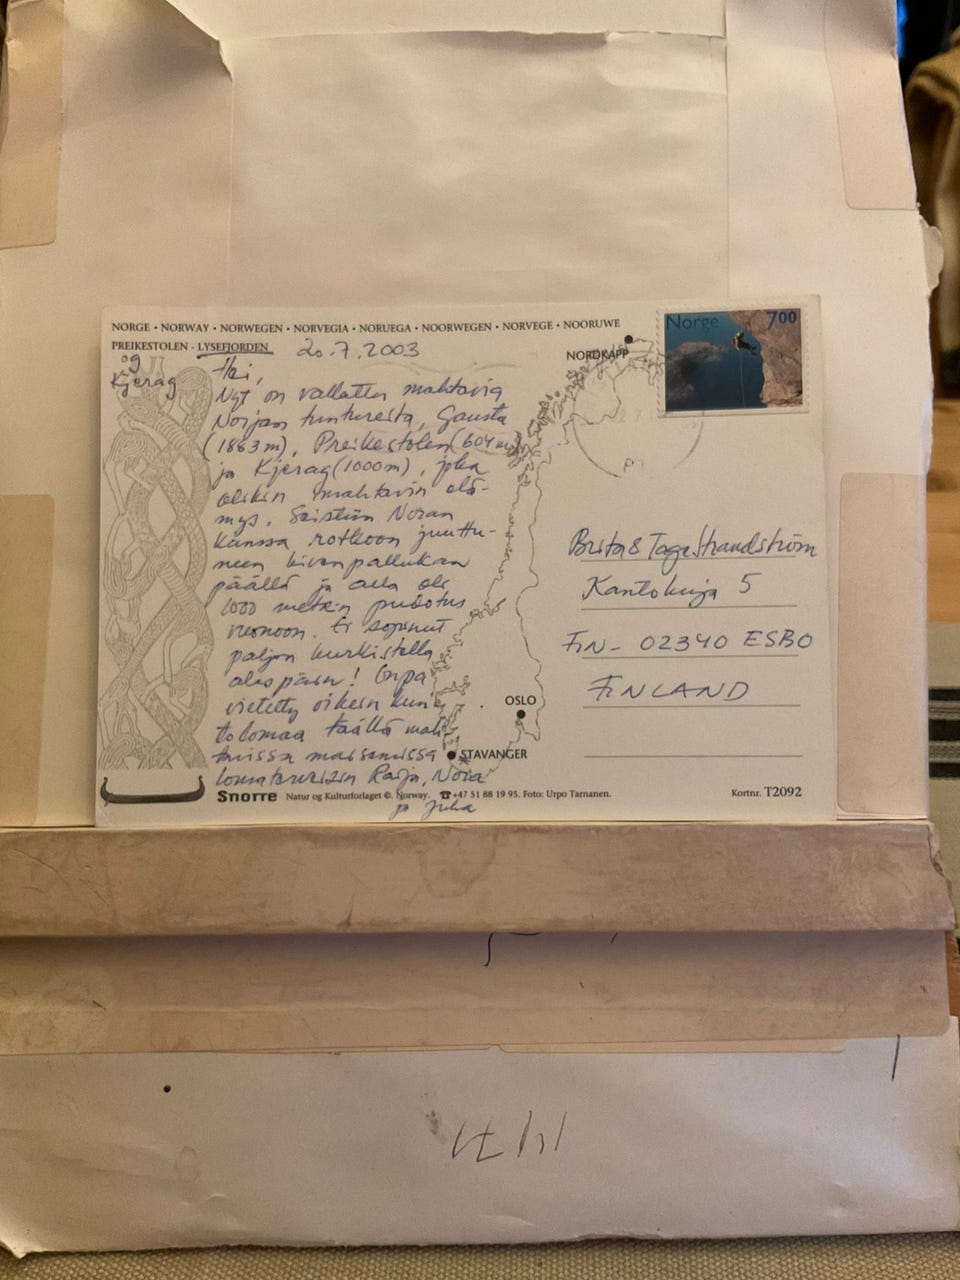 NORGE • NORWAY • NORWEGEN • NORVEGIA • NORUEGA • NOORWEGEN • NORVEGE • NOORUWE
PREIKESTOLEN - LYSEFJORDEN
og
Kjerag
20.7.2003
Hei,
Nyt on vallattu mahtavia
Norjan tuntureita, Gausta
(1883 m), Preikestolen (604 m)
ja Kjerag (1000 m), joka
olikin mahtavin elä-
mys. Seistiin Nooran
kanssa rotkoon juuttu-
neen kivenpallukan
päällä ja alla oli
1000 metrin pudotus
vuonoon. Ei sopinut
paljon kurkistella
alaspäin! Onpa
vietetty oikein kun
tolomaa täällä mah
tavissa maisemissa
lomaterveisin Raija, Noora
ja Juha
Norge 700
NORDKAPP
OSLO
STAVANGER
Brita & Tage Strandström
Kantokuja 5
FIN - 02340 ESBO
FINLAND
Snorre Natur og Kulturforlaget ©. Norway. ☎+47 51 88 19 95. Foto: Urpo Tarnanen.
Kortnr. T2092